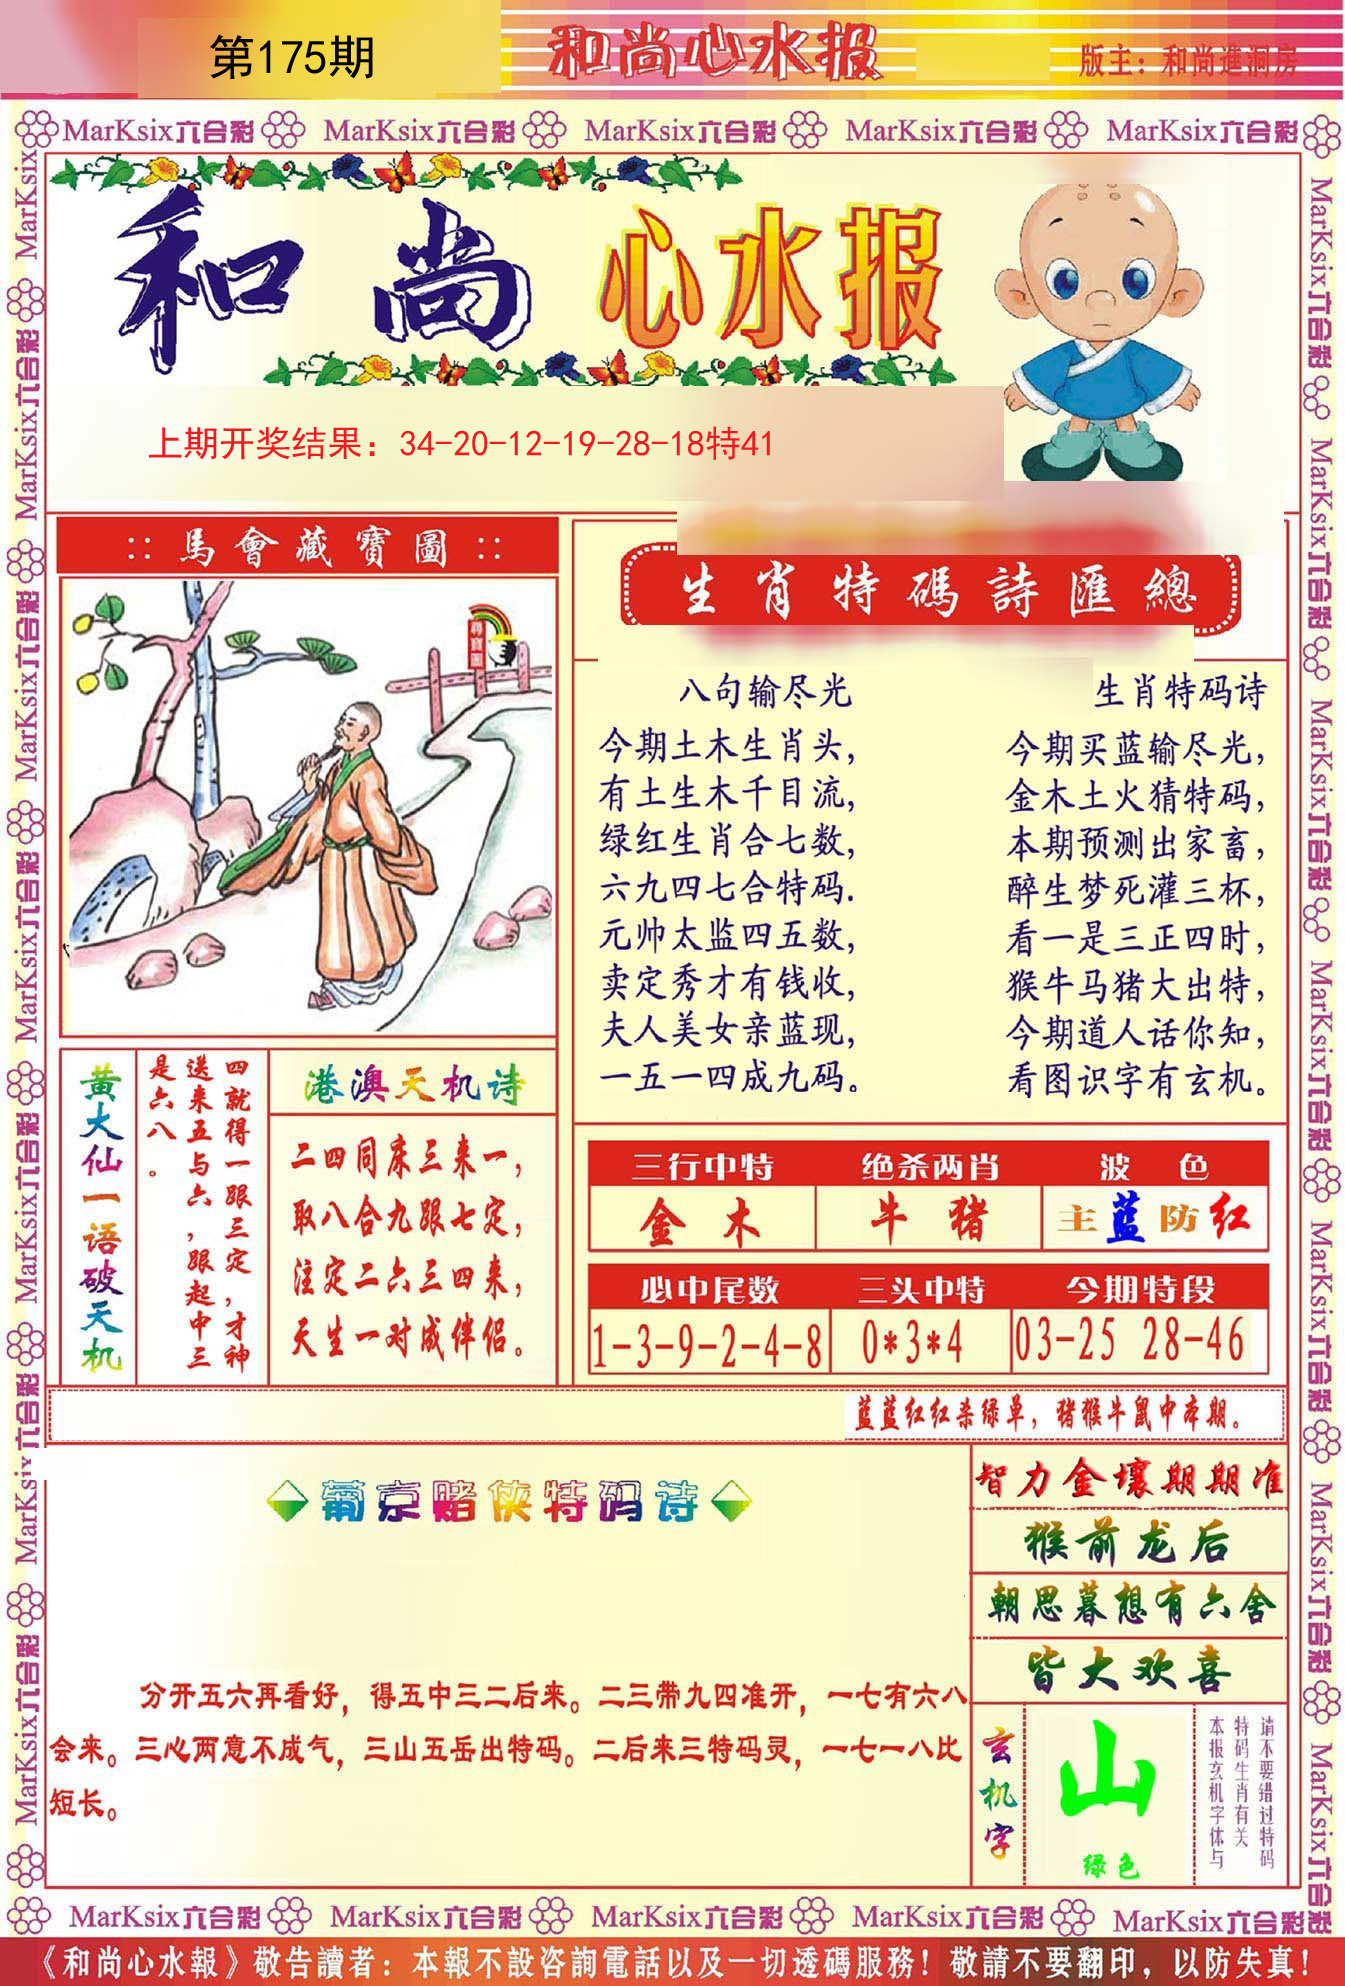 第175期
和尚心水报
版主：和尚進洞房
MarKsix六合彩 MarKsix六合彩 MarKsix六合彩 MarKsix六合彩 MarKsix六合彩
和尚心水报
上期开奖结果：34-20-12-19-28-18特41
::馬會藏寶圖::
尋寶圖
生肖特碼詩匯總
八句输尽光
今期土木生肖头，
有土生木千目流，
绿红生肖合七数，
六九四七合特码.
元帅太监四五数，
卖定秀才有钱收，
夫人美女亲蓝现，
一五一四成九码。
生肖特码诗
今期买蓝输尽光，
金木土火猜特码，
本期预测出家畜，
醉生梦死灌三杯，
看一是三正四时，
猴牛马猪大出特，
今期道人话你知，
看图识字有玄机。
黄大仙一语破天机
四就得一跟三定，才神
送来五与六，跟起中三
是六八。
港澳天机诗
二四同床三来一，
取八合九跟七定，
注定二六三四来，
天生一对成伴侣。
三行中特 绝杀两肖 波色
金木 牛猪 主蓝防红
必中尾数 三头中特 今期特段
1-3-9-2-4-8 0*3*4 03-25 28-46
蓝蓝红红杀绿单，猪猴牛鼠中本期。
葡京赌侠特码诗
分开五六再看好，得五中三二后来。二三带九四准开，一七有六八
会来。三心两意不成气，三山五岳出特码。二后来三特码灵，一七一八比
短长。
智力金壤期期准
猴前龙后
朝思暮想有六舍
皆大欢喜
玄机字
山
绿色
请不要错过特码
特码生肖有关
本报玄机字体与
MarKsix六合彩 MarKsix六合彩 MarKsix六合彩 MarKsix六合彩 MarKsix六合彩
《和尚心水報》敬告讀者：本報不設咨詢電話以及一切透碼服務！敬請不要翻印，以防失真！